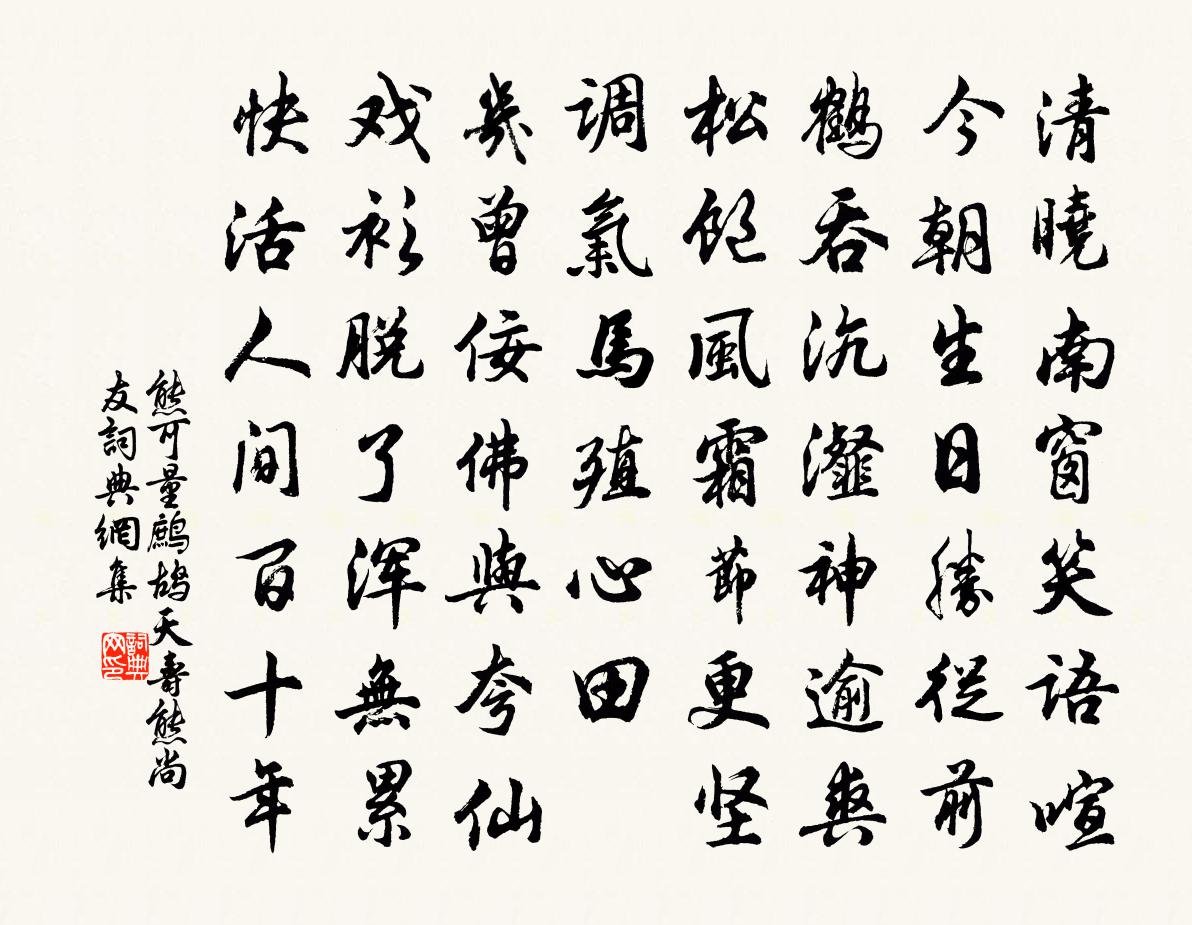 清曉南窗笑語喧
今朝生日勝從前
鶴吞沆瀣神逾爽
松飽風霜節更坚
調氣馬殖心田
幾曾佞佛與夸仙
戏衫脱了浑無累
快活人间百十年
熊可量鷓鴣天壽熊尚
友詞典網集
詞典网印